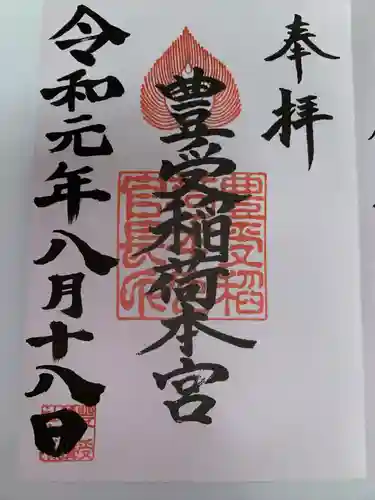 奉拝
豊受稲荷本宮
令和元年八月十八日